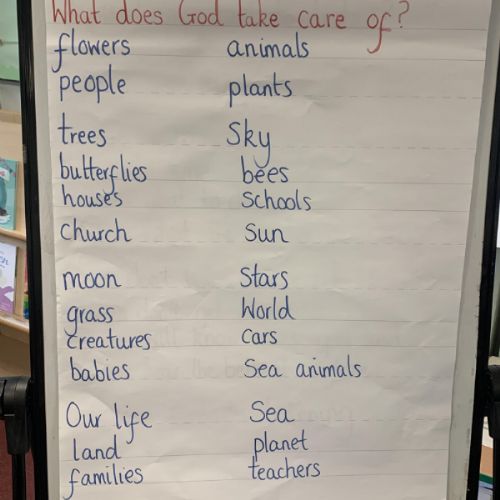 What does God take care of?
flowers animals
people plants
trees Sky
butterflies bees
houses Schools
church Sun
moon Stars
grass World
creatures Cars
babies Sea animals
Our life Sea
land planet
families teachers